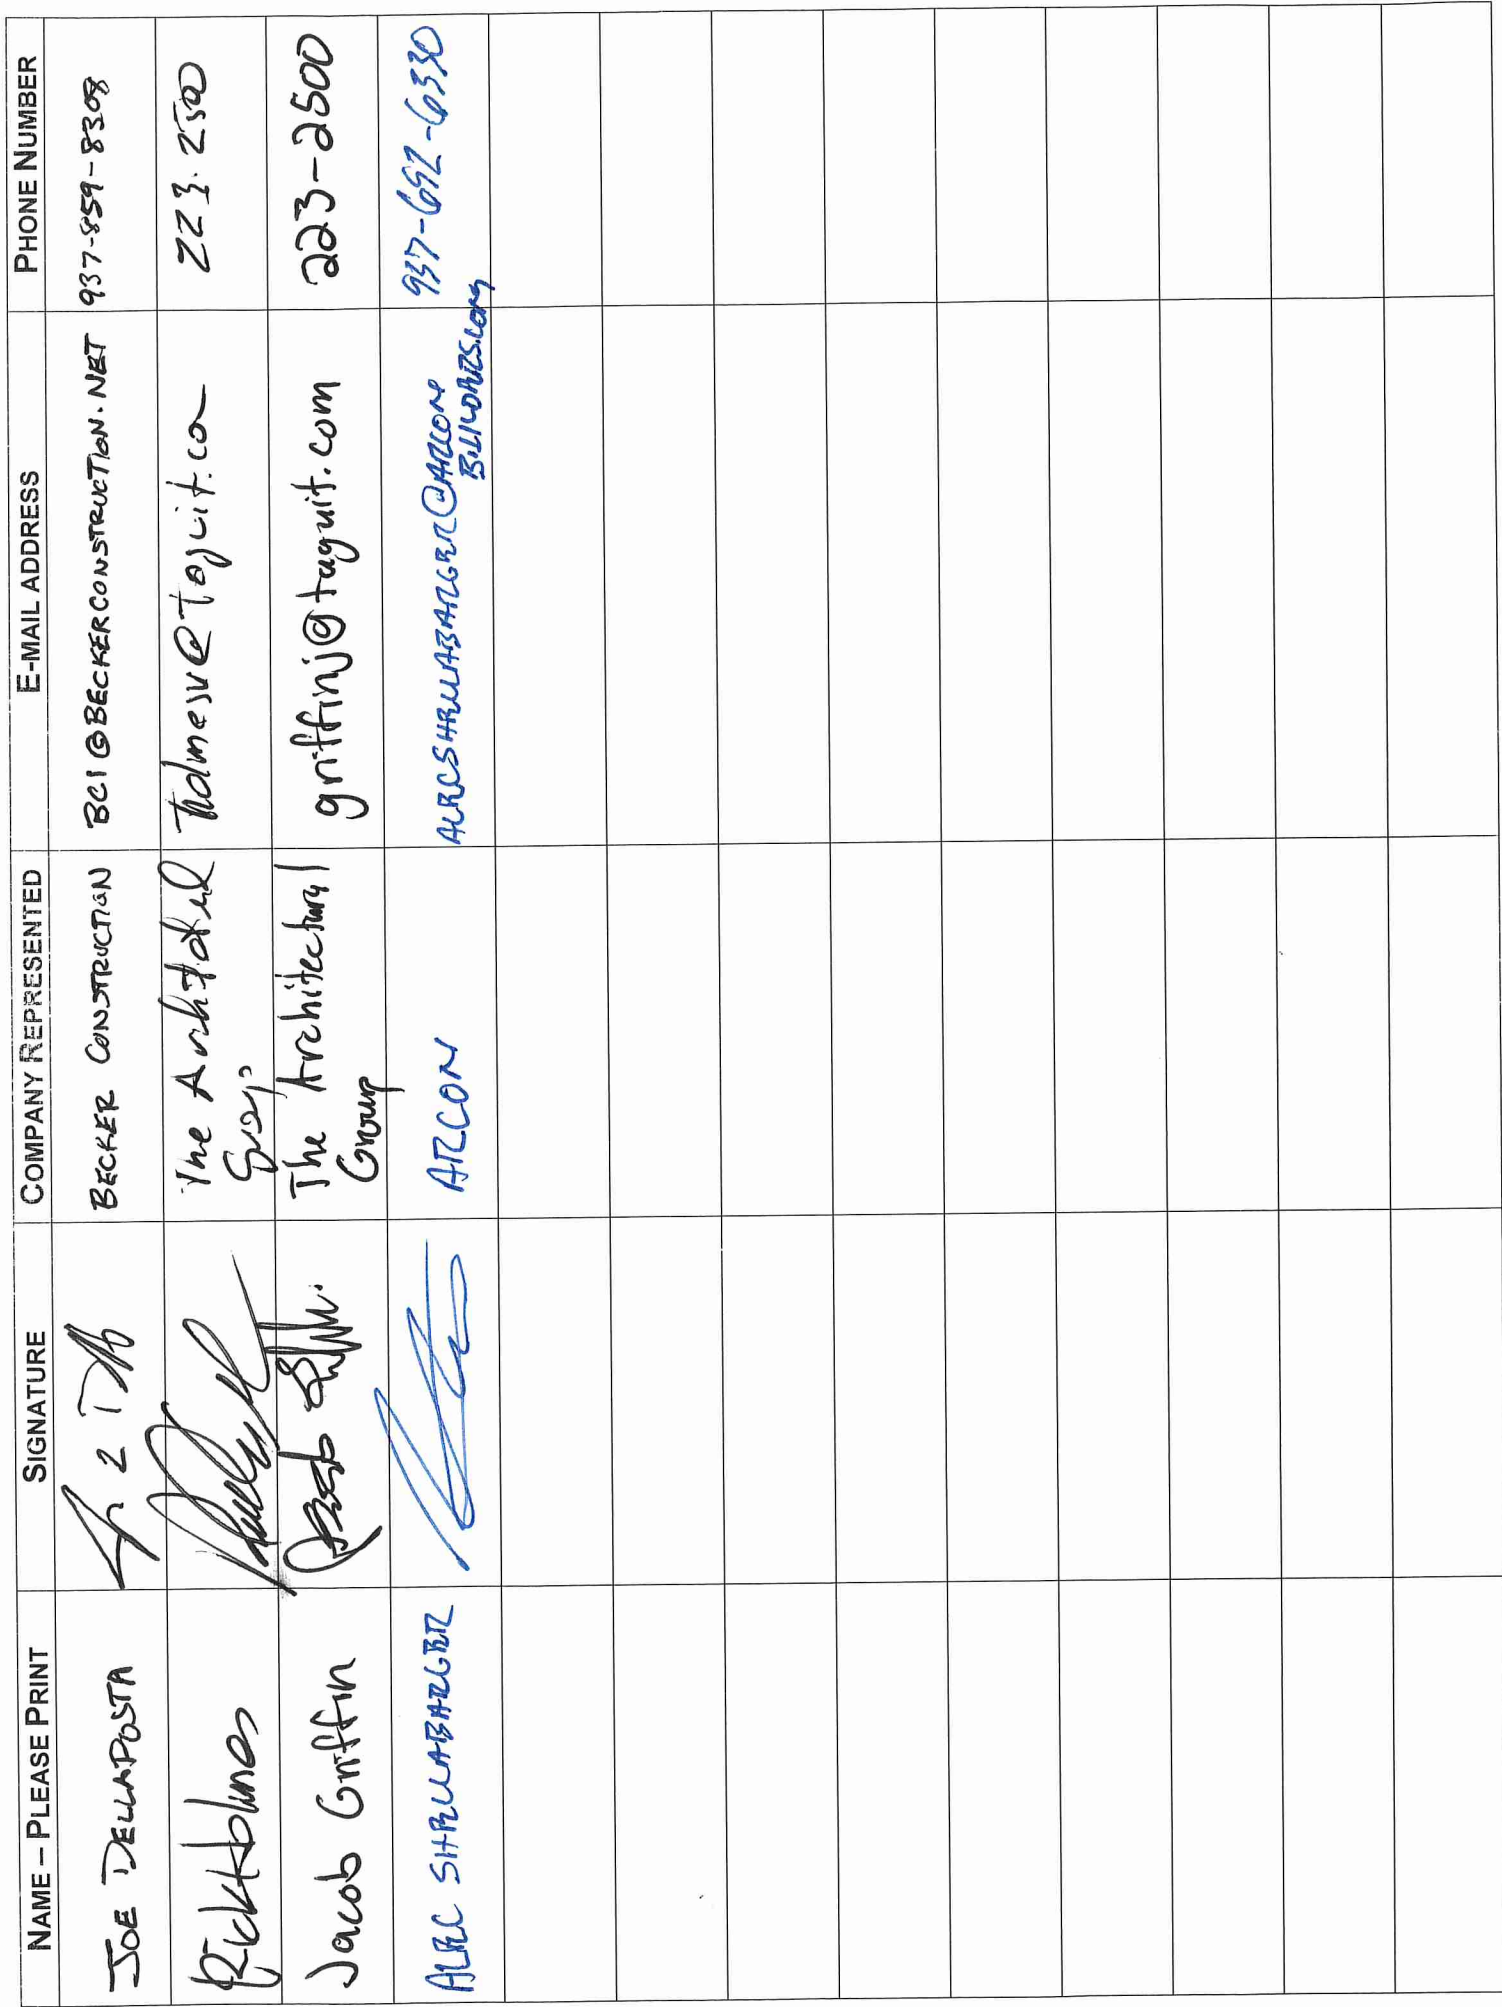 NAME – PLEASE PRINT SIGNATURE COMPANY REPRESENTED E-MAIL ADDRESS PHONE NUMBER
JOE DELLAPOSTA BECKER CONSTRUCTION BCI@BECKERCONSTRUCTION.NET 937-859-8308
Rick Holmes The Architectural 223-2500
Group
Jacob Griffin The Architectural griffinj@taguit.com 223-2500
Group
ALEC SHELLABARGER ARCON ALECSHELLABARGER@ARCON 937-692-6330
BUILDERS.COM